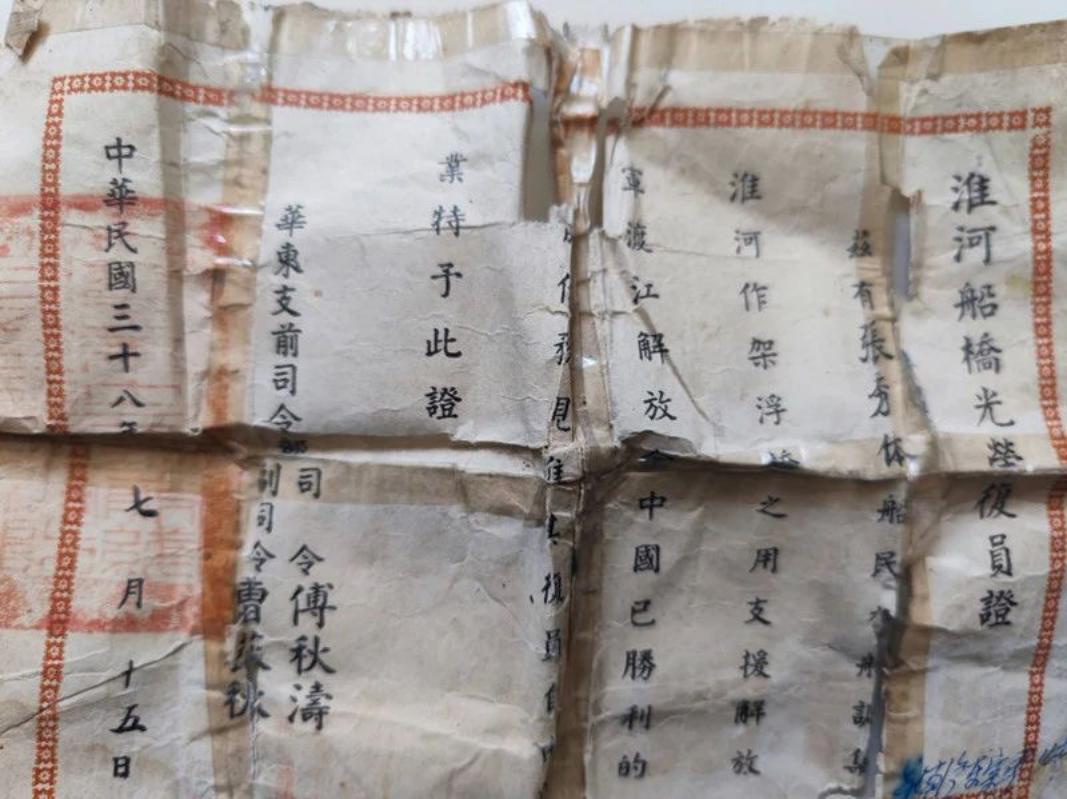 淮河船橋光榮復員證
茲有張秀体船民
淮河作架浮橋之用支援解放
軍渡江解放全中國已勝利的
任務現准其復員自
業特予此證
華東支前司令部司令傅秋濤
副司令曹荻秋
中華民國三十八年七月十五日